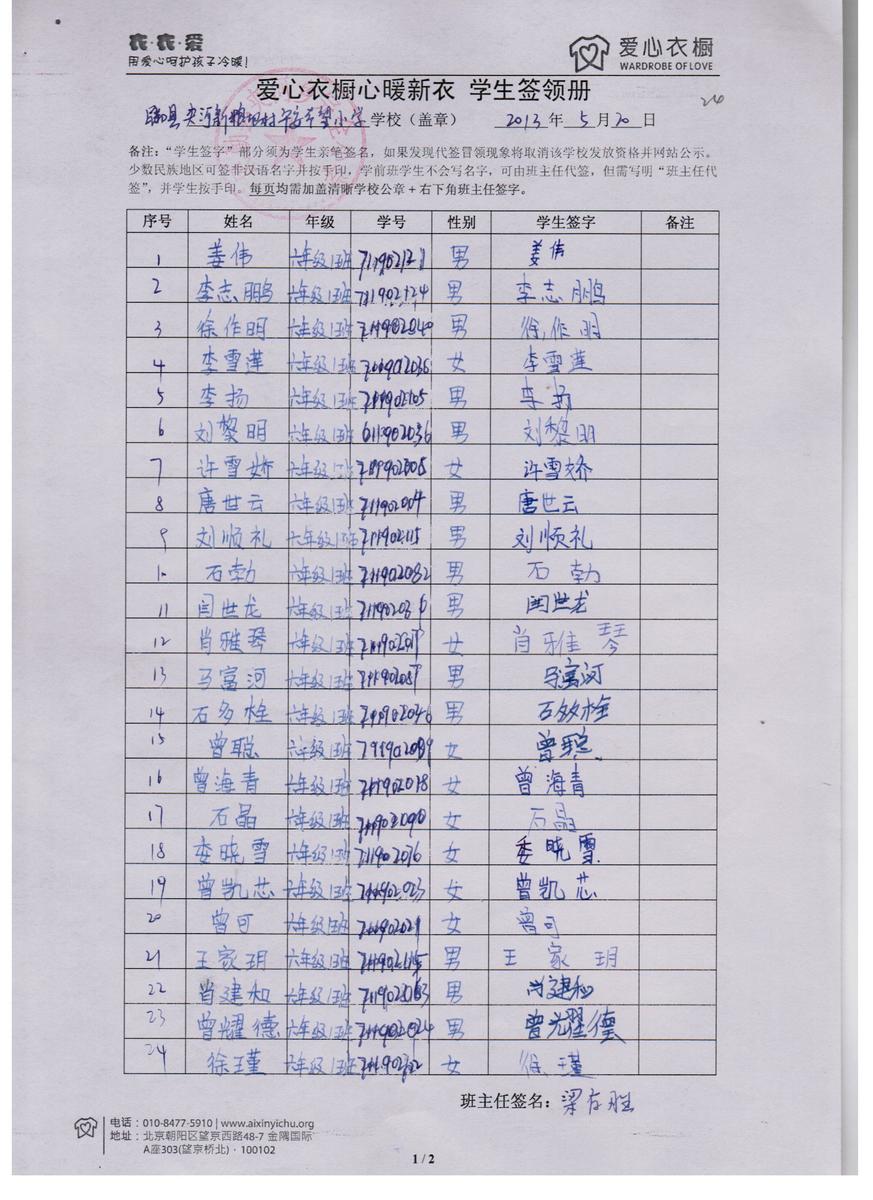 衣·衣·爱
用爱心呵护孩子冷暖!
爱心衣橱
WARDROBE OF LOVE
爱心衣橱心暖新衣 学生签领册
24
希望小学学校（盖章） 2013年5月20日
备注：“学生签字”部分须为学生亲笔签名，如果发现代签冒领现象将取消该学校发放资格并网站公示。
少数民族地区可签非汉语名字并按手印，学前班学生不会写名字，可由班主任代签，但需写明“班主任代
签”，并学生按手印。每页均需加盖清晰学校公章+右下角班主任签字。
序号 姓名 年级 学号 性别 学生签字 备注
1 姜伟 六年级1班 男 姜伟
2 李志鹏 六年级1班 711902124 男 李志鹏
3 徐作明 六年级1班 男 徐作明
4 李雪莲 六年级1班 女 李雪莲
5 李扬 六年级1班 男 李扬
6 刘黎明 六年级1班 男 刘黎明
7 许雪娇 六年级1班 女 许雪娇
8 唐世云 六年级1班 男 唐世云
9 刘顺礼 六年级1班 711902115 男 刘顺礼
10 石勃 六年级1班 711902032 男 石勃
11 闫世龙 六年级1班 男 闫世龙
12 肖雅琴 六年级1班 女 肖雅琴
13 马富河 六年级1班 男 马富河
14 石多栓 六年级1班 男 石多栓
15 曾聪 六年级1班 女 曾聪
16 曾海青 六年级1班 711902018 女 曾海青
17 石晶 六年级1班 711902090 女 石晶
18 娄晓雪 六年级1班 711902076 女 娄晓雪
19 曾凯芯 六年级1班 711902023 女 曾凯芯
20 曾可 六年级1班 711902021 女 曾可
21 王家玥 六年级1班 男 王家玥
22 肖建和 六年级1班 男 肖建和
23 曾耀德 六年级1班 男 曾耀德
24 徐瑾 六年级1班 女 徐瑾
班主任签名：梁存胜
电话：010-8477-5910 | www.aixinyichu.org
地址：北京朝阳区望京西路48-7 金隅国际
A座303(望京桥北)·100102
1 / 2